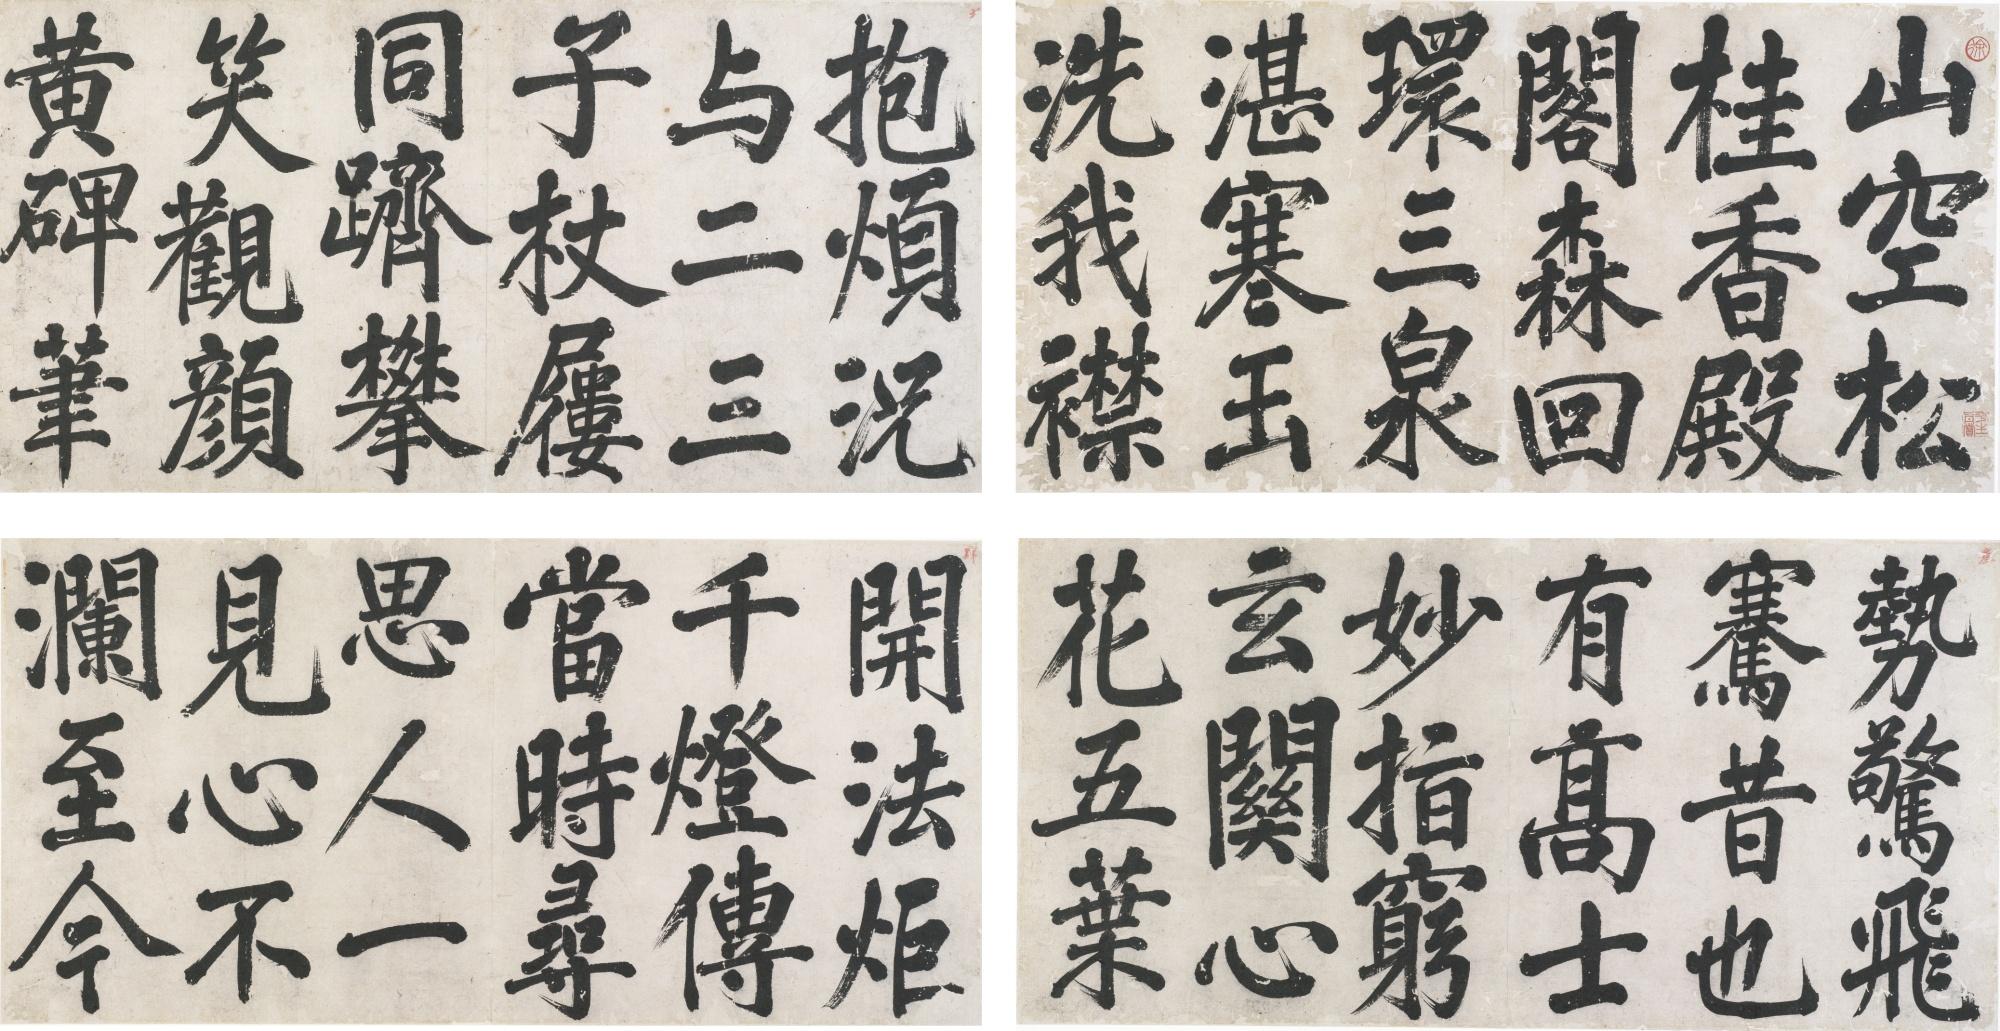 山空松
桂香殿
閣森回
環三泉
湛寒玉
洗我襟
抱煩況
与二三
子杖屨
同躋攀
笑觀顔
黄碑筆
勢驚飛
騫昔也
有髙士
妙指窮
玄關心
花五葉
開法炬
千燈傳
當時尋
思人一
見心不
瀾至今